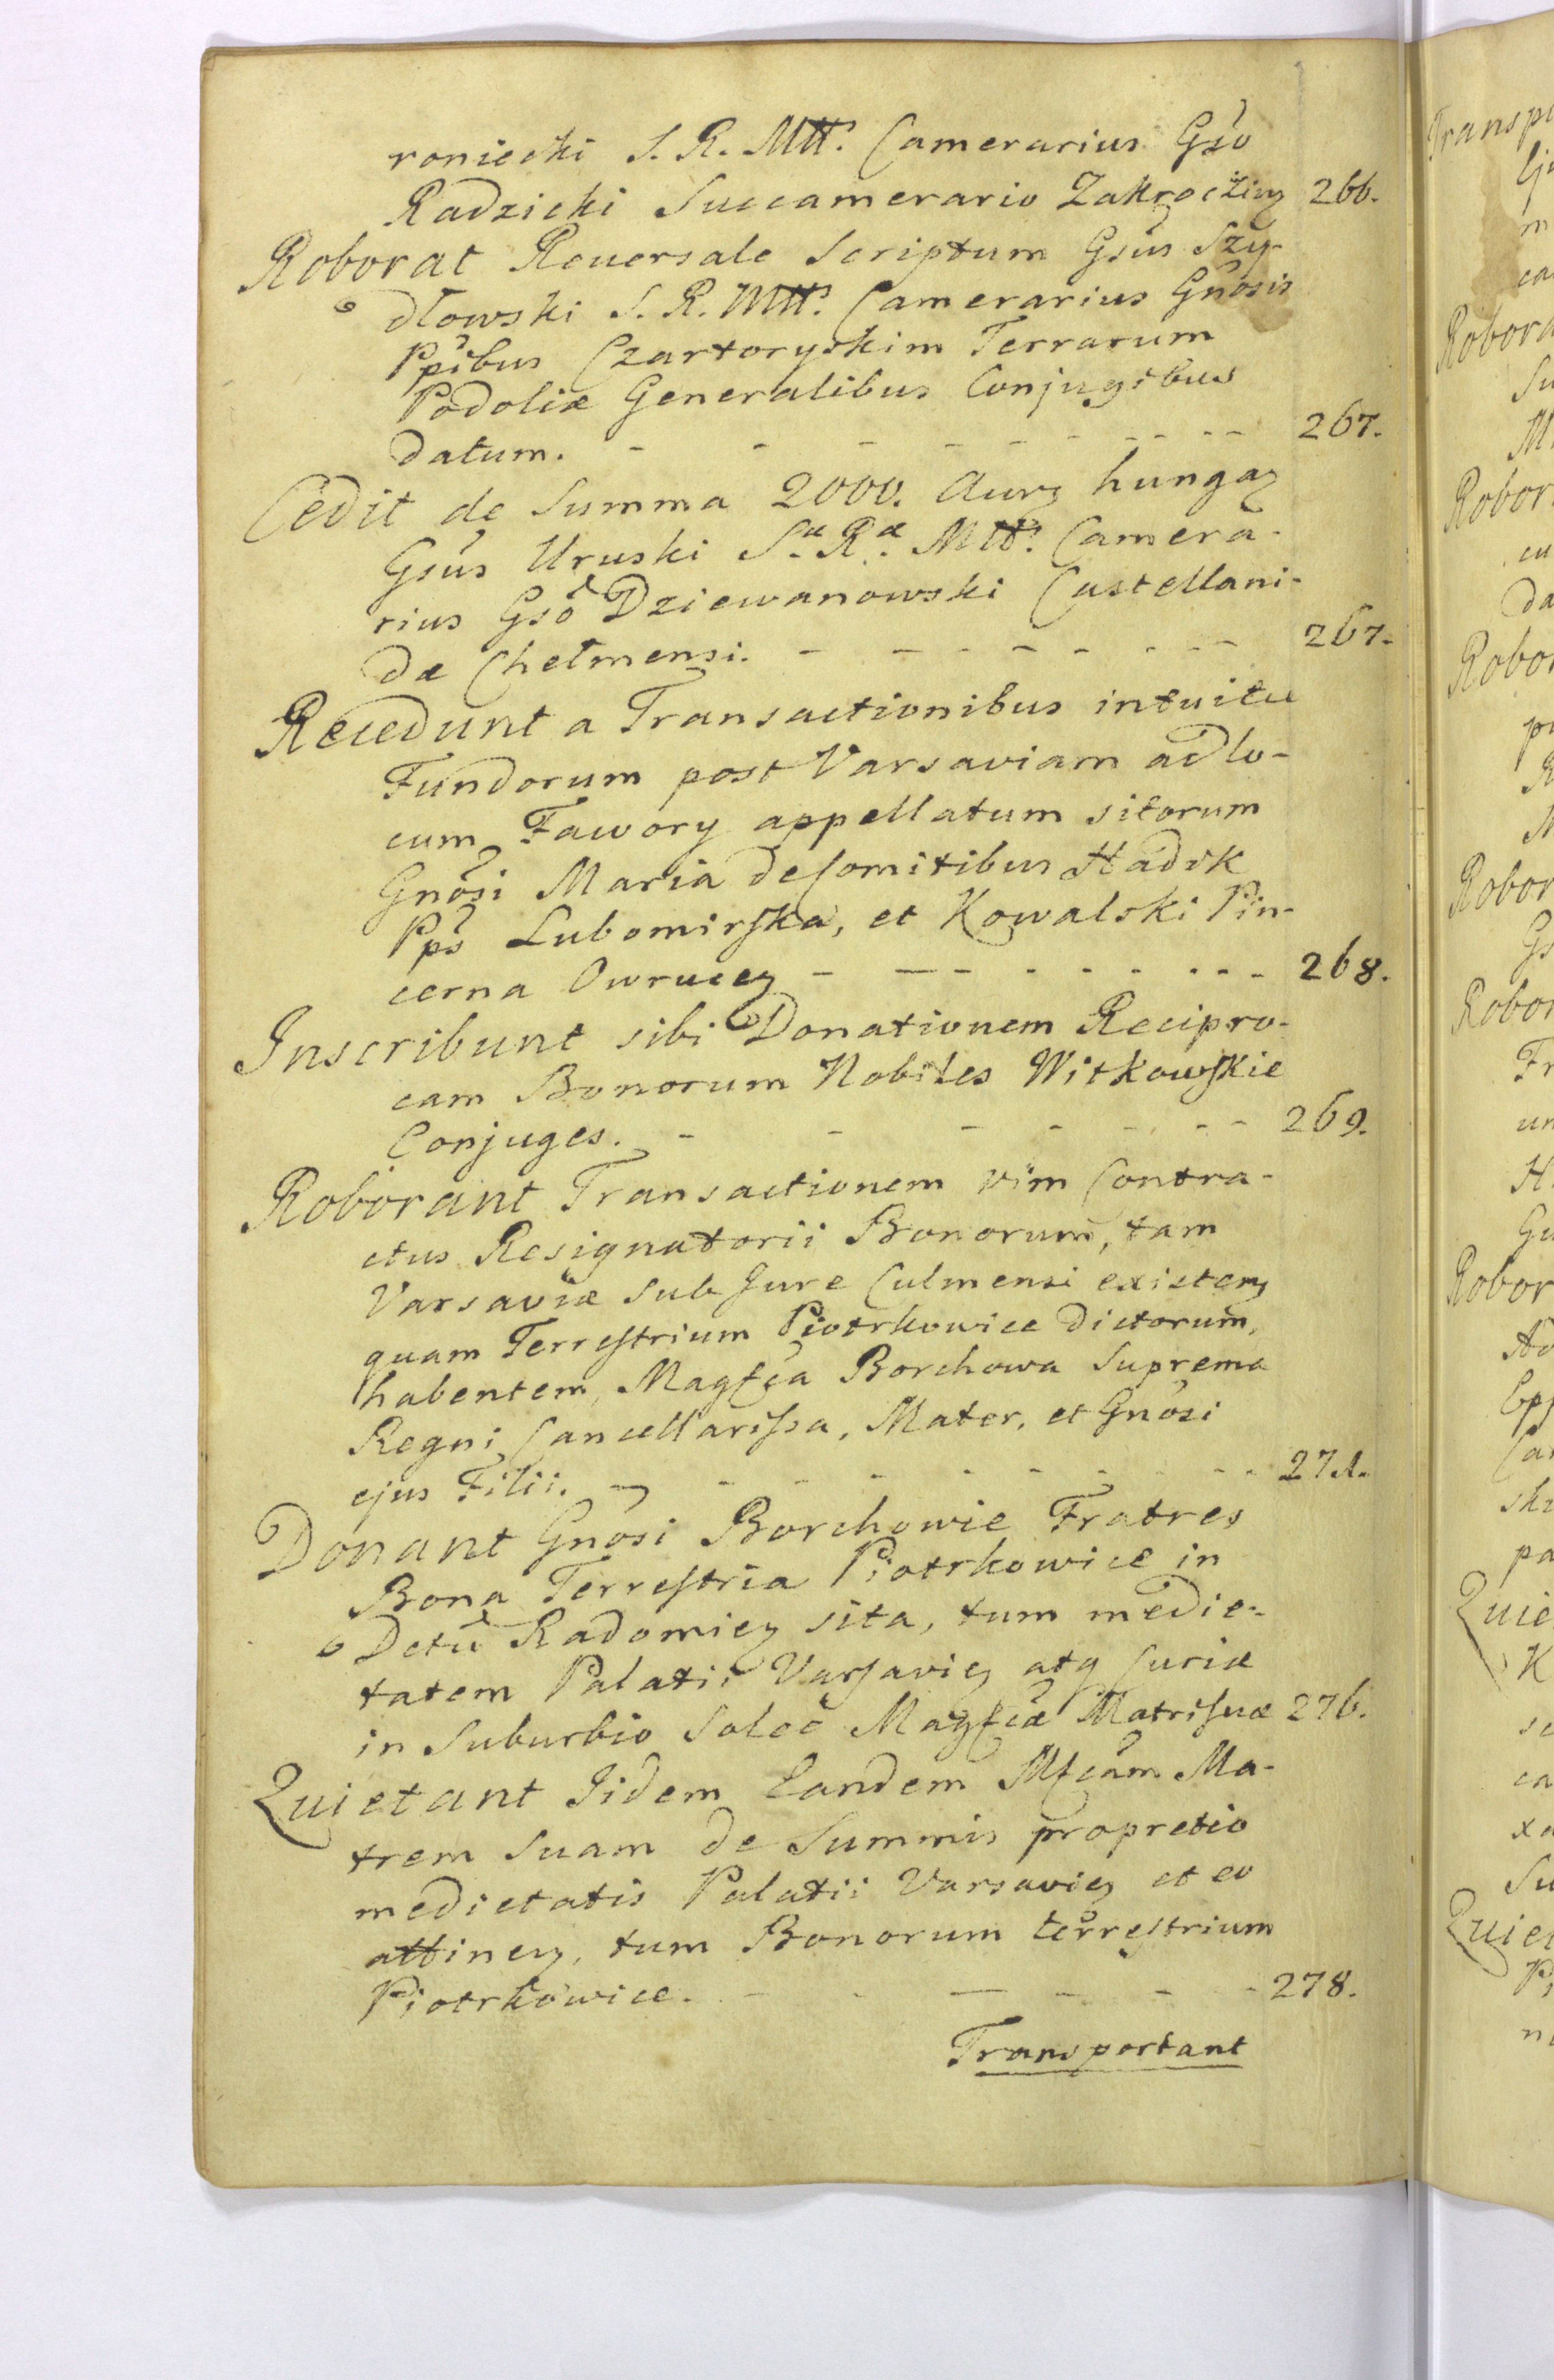 roniecki S. R. Mtt. Camerarius Gso
Radzicki Succamerario Zakroczimz 266.
Roborat Reuersale Scriptum Gsus Szy-
dłowski S. R. Mtt. Camerarius Gnosis
Ppibus Czartoryskim Terrarum
Podoliæ Generalibus Conjugibus
datum. - - - - - - - - - 267.
Cedit de Summa 2000. Aurz hungaz
Gsus Uruski Sæ Ræ Mtt. Camera-
rius Gso Dziewanowski Castellani-
dæ Chełmensi. - - - - - - - 267.
Recedunt a Transactionibus intuitu
Fundorum post Varsaviam ad lo-
cum Fawory appellatum sitorum
Gnosi Maria de Comitibus Hadik
Pps Lubomirska, et Kowalski Pin-
cerna Owrucez - - - - - - - - - 268.
Inscribunt sibi Donationem Recipro-
cam Bonorum Nobiles Witkowskie
Conjuges. - - - - - - - 269.
Roborant Transactionem vim Contra-
ctus Resignatorii Bonorum, tam
Varsaviæ sub Jure Culmensi existenz
quam Terrestrium Piotrkowice dictorum,
habentem, Magfca Borchowa Suprema
Regni Cancellarissa, Mater, et Gnosi
ejus Filii. - - - - - - - - - 271.
Donant Gnosi Borchowie Fratres
Bona Terrestria Piotrkowice in
Dctu Radomiez sita, tum medie-
tatem Palatii Varsaviez atq Curiæ
in Suburbio Solec Magfcæ Matri suæ 276.
Quietant Iidem Eandem Mfcam Ma-
trem Suam de Summis pro pretio
medietatis Palatii Varsaviez et eo
attinenz, tum Bonorum terrestrium
Piotrkowice. - - - - - - 278.
Transportant